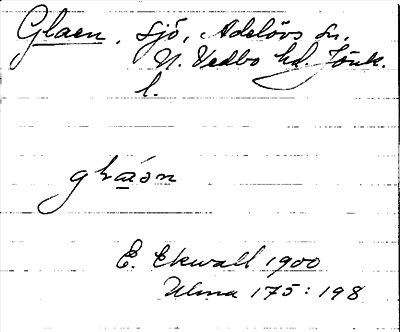 Glaen, sjö, Adelövs sn.
N. Vedbo hd. Jönk.
l.
glaən
E. Ekwall 1900
Ulma 175:198